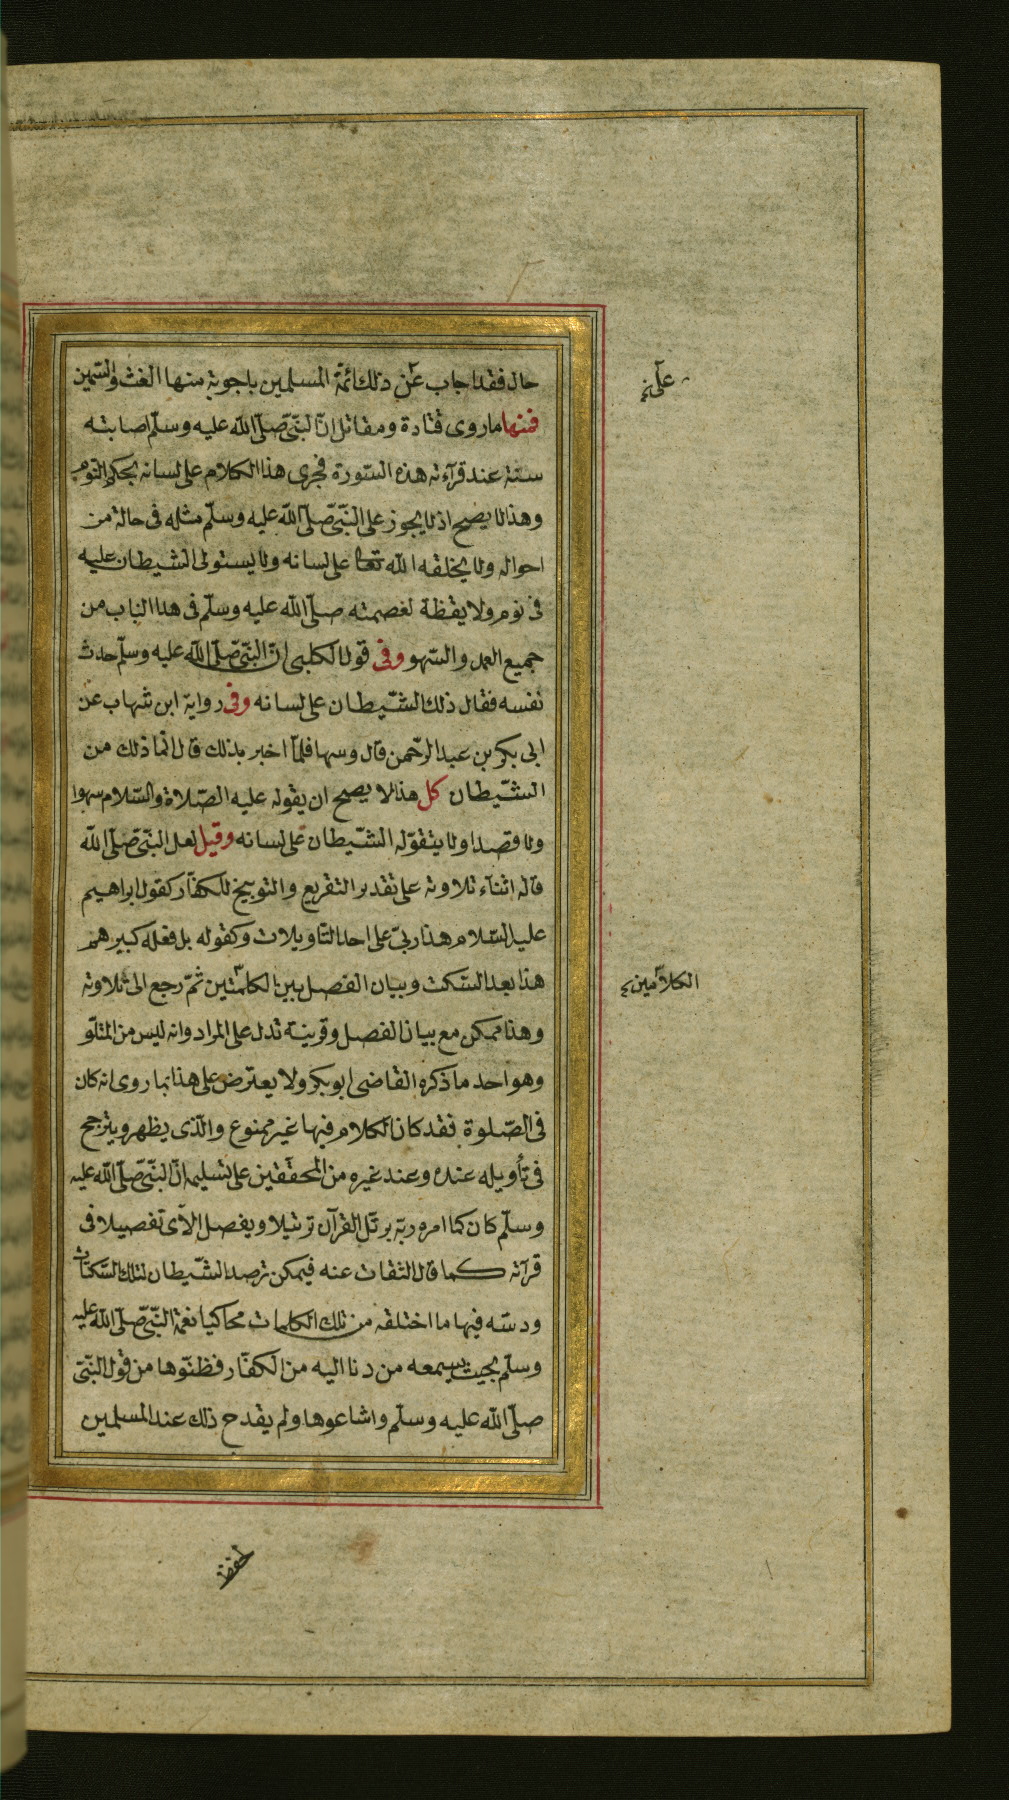 حال فقد اجاب عن ذلك ائمّة المسلمين باجوبة منها الغث والسّمين
فمنها ما روى قتادة ومقاتل انّ النبّى صلّى الله عليه وسلّم اصابته
سنة عند قرآءته هذه السّورة فجرى هذا الكلام على لسانه بحكم النّوم
وهذا لا يصح اذ لا يجوز على النّبّى صلّى الله عليه وسلّم مثله فى حالة من
احواله ولا يخلقه الله تعا على لسانه ولا يستولى الشيطان عليه
فى نوم ولا يقظة لعصمته صلّى الله عليه وسلّم فى هذا الباب من
جميع العمد والسّهو وفى قول الكلبى انّ النبّى صلّى الله عليه وسلّم حدث
نفسه فقال ذلك الشّيطان على لسانه وفى رواية ابن شهاب عن
ابى بكر بن عبد الرّحمن قال وسها فلمّا اخبر بذلك قال انّما ذلك من
الشّيطان كل هذا لا يصح ان يقوله عليه الصّلاة والسّلام سهوا
ولا قصدا ولا يتقوّله الشّيطان على لسانه وقيل لعل النّبّى صلّى الله
قاله اثناء تلاوته على تقدير التقريع والتوبيخ للكفّار كقول ابراهيم
عليه السّلام هذا ربىّ على احد التّاويلات وكقوله بل فعله كبيرهم
هذا بعد السّكت وبيان الفصل بين الكلمتين ثمّ رجع الى تلاوته
وهذا ممكن مع بيان الفصل وقرينة تدل على المراد وانه ليس من المتلوّ
وهو احد ما ذكره القاضى ابو بكر ولا يعترض على هذا بما روى انه كان
فى الصّلوة فقد كان الكلام فيها غير ممنوع والّذى يظهر ويترجح
فى تأويله عنده وعند غيره من المحققين على تسليمه انّ النبّى صلّى الله عليه
وسلّم كان كما امره ربّه يرتّل القرآن ترتيلا ويفصل الآى تفصيلا فى
قرآته كما قال الثقات عنه فيمكن ترصد الشّيطان لتلك السّكتات
ودسّه فيها ما اختلقه من تلك الكلمات محاكيا نغمة النّبّى صلّى الله عليه
وسلّم بحيث يسمعه من دنا اليه من الكفّار فظنّوها من قول النّبّى
صلّى الله عليه وسلّم واشاعوها ولم يقدح ذلك عند المسلمين
الكلامين
لحفظ